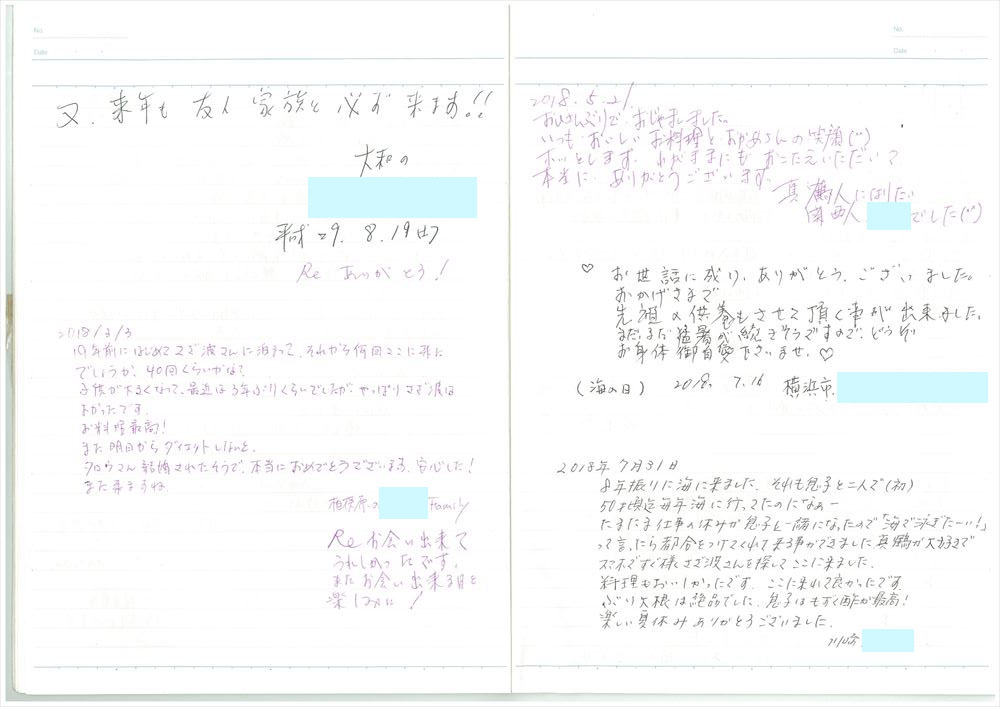 No.
Date
又、来年も 友人 家族と 必ず 来ます!!
大和の
平成29. 8. 19
Re ありがとう!
2018/3/3
19年前にはじめてさざ波さんに泊まって、それから何回ここに来た
でしょうか、40回くらいかな?
子供が大きくなって、最近は3年ぶりくらいでしたが、やっぱりさざ波は
よかったです。
お料理最高!
また明日からダイエットしないと。
タロウさん結婚されたそうで、本当におめでとうございます。安心した!
また来ますね
相模原の Family
Re お会い出来て
うれしかったです。
またお会い出来る日を
楽しみに!
No.
Date
2018.5.21
おひさしぶりで、おじゃましました。
いつも おいしい お料理と おかあさんの 笑顔(^^)
ホッとします。わがままにも おこたえいただいて
本当に、ありがとうございます。
真鶴人になりたい
関西人 でした(^^)
♡ お世話に成り、ありがとう、ございました。
おかげさまで
先祖の供養もさせて頂く事が出来ました。
まだ、まだ猛暑が続きそうですので、どうぞ
お身体御自愛下さいませ。♡
(海の日) 2018. 7.16 横浜市
2018年7月31日
8年振りに海に来ました。それも息子と二人で(初)
50才頃迄毎年海に行ってたのになぁー
たまたま仕事の休みが息子と一緒になったので「海で泳ぎたーい!」
って言ったら都合をつけてくれて来る事ができました真鶴が大好きで
スマホですぐ様さざ波さんを探してここに来ました。
料理もおいしかったです。ここに来れて良かったです。
ぶり大根は絶品でした。息子はもずく酢が最高!
楽しい夏休みありがとうございました。
川崎